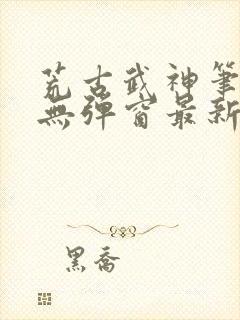 荒古武神筆
無彈窗最新
黑喬